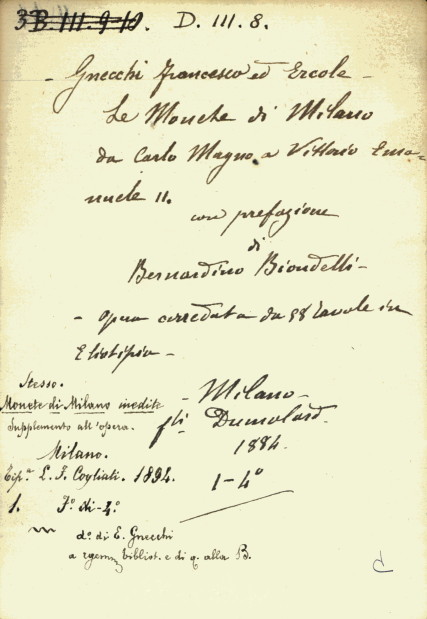 3 B. III. 9-10. D. III. 8.
- Gnecchi Francesco ed Ercole -
Le Monete di Milano
da Carlo Magno a Vittorio Ema-
nuele II.
con prefazione
di
Bernardino Biondelli -
- Opera corredata da 58 tavole in
Eliotipia -
- Milano -
fli Dumolard.
1884.
1-4°
Stesso.
Monete di Milano inedite
Supplemento all'opera.
Milano.
Tip.a L. F. Cogliati. 1894.
1. F.° di-4°
d.° di E. Gnecchi
a bibliot. e di q. alla B.
C